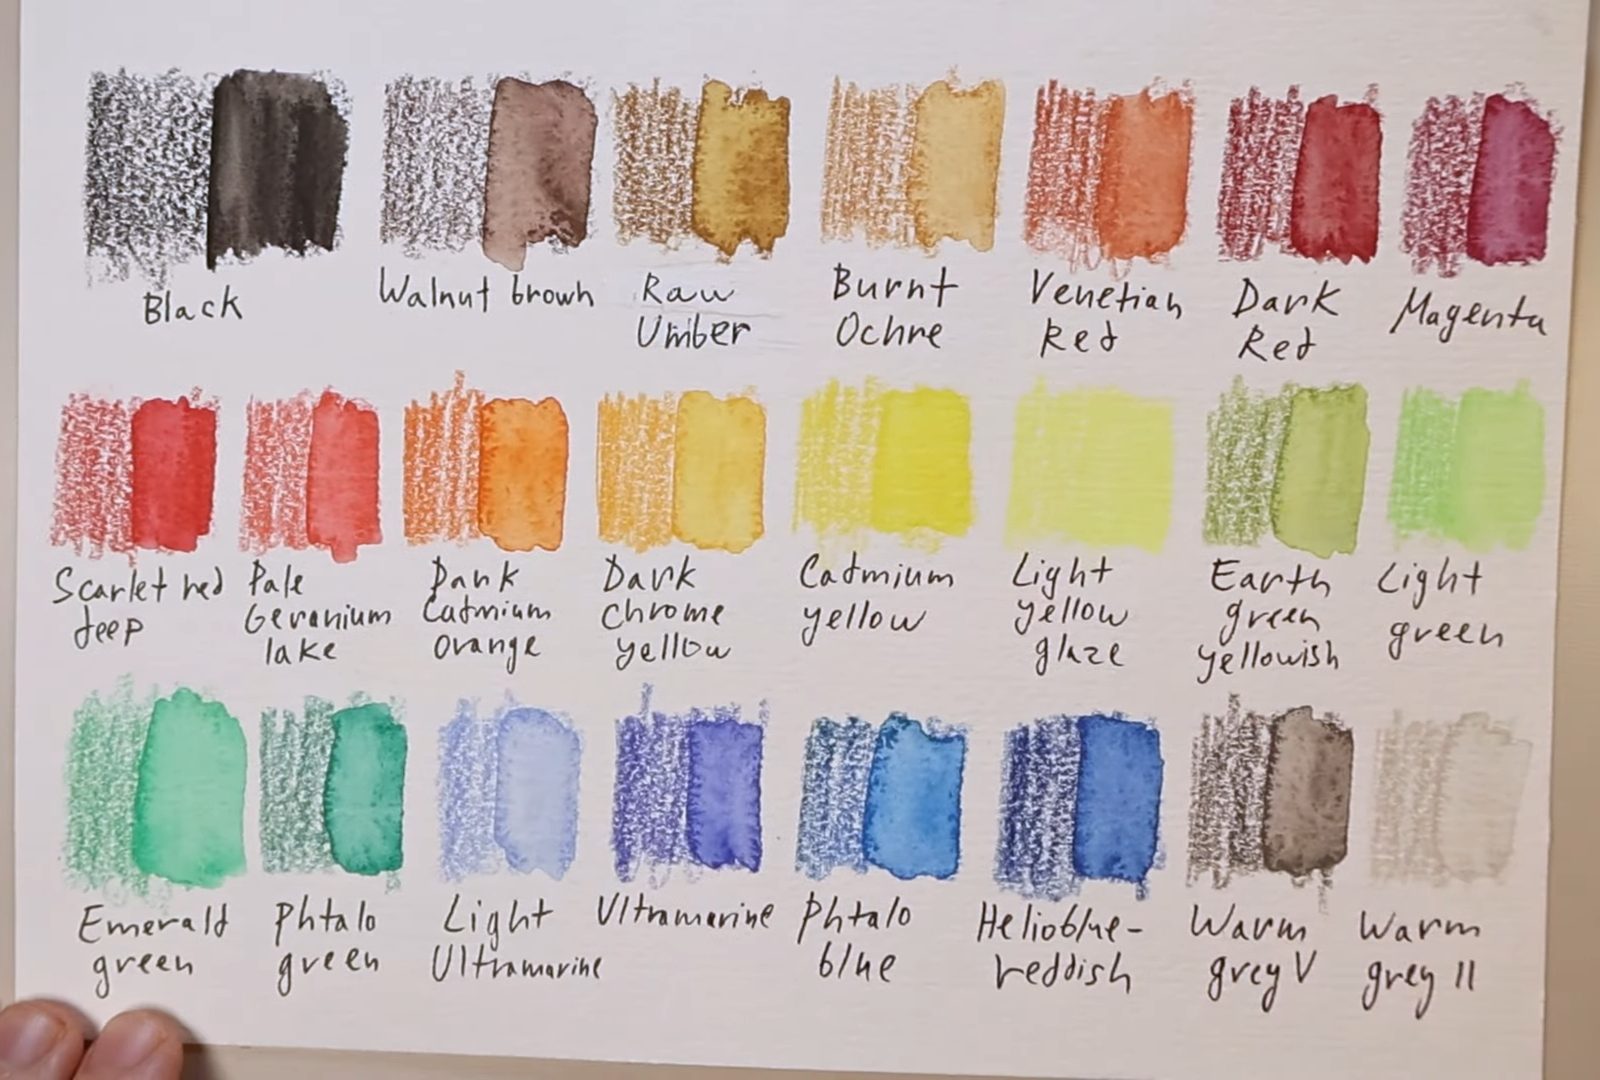 Black
Walnut brown
Raw
Umber
Burnt
Ochre
Venetian
Red
Dark
Red
Magenta
Scarlet red
deep
Pale
Geranium
lake
Dark
Cadmium
orange
Dark
chrome
yellow
Cadmium
yellow
Light
yellow
glaze
Earth
green
yellowish
Light
green
Emerald
green
Phtalo
green
Light
Ultramarine
Ultramarine
Phtalo
blue
Helioblue-
reddish
Warm
grey V
Warm
grey II